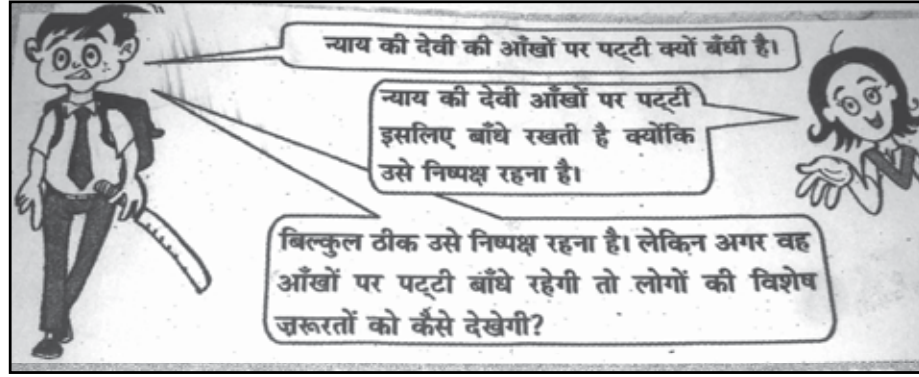 न्याय की देवी की आँखों पर पट्टी क्यों बँधी है।
न्याय की देवी आँखों पर पट्टी
इसलिए बाँधे रखती है क्योंकि
उसे निष्पक्ष रहना है।
बिल्कुल ठीक उसे निष्पक्ष रहना है। लेकिन अगर वह
आँखों पर पट्टी बाँधे रहेगी तो लोगों की विशेष
ज़रूरतों को कैसे देखेगी?